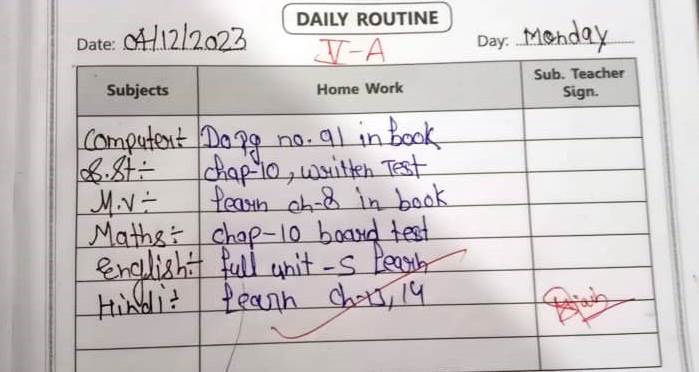 DAILY ROUTINE
Date: 04/12/2023 V-A Day: Monday
Subjects Home Work Sub. Teacher Sign.
Computer÷ Do pg no. 91 in book
S.St÷ chap-10, written Test
M.V÷ learn ch-8 in book
Maths÷ chap-10 board test
English÷ full unit-5 learn
Hindi÷ learn ch-13, 14